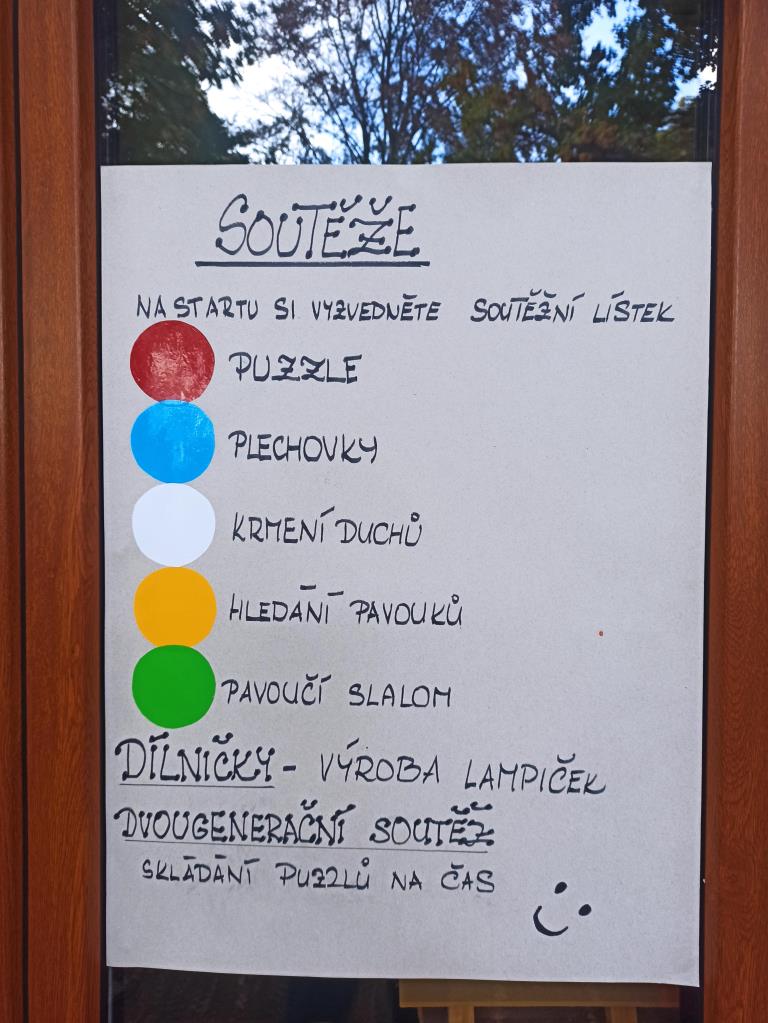 SOUTĚŽE
NA STARTU SI VYZVEDNĚTE SOUTĚŽNÍ LÍSTEK
PUZZLE
PLECHOVKY
KRMENÍ DUCHŮ
HLEDÁNÍ PAVOUKŮ
PAVOUČÍ SLALOM
DÍLNIČKY - VÝROBA LAMPIČEK
DVOUGENERAČNÍ SOUTĚŽ
SKLÁDÁNÍ PUZZLŮ NA ČAS